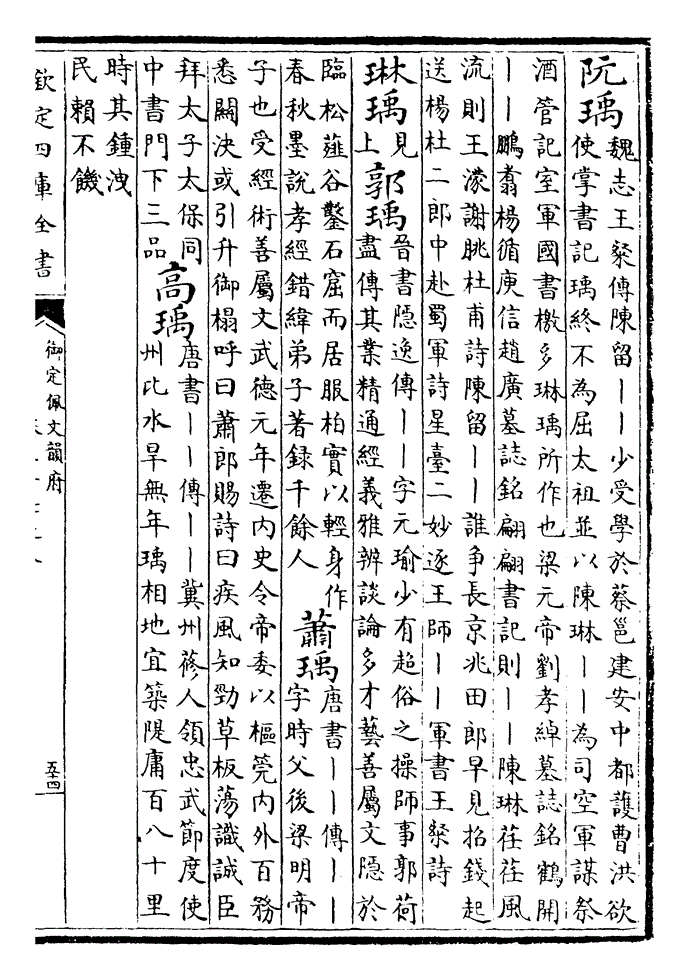 阮瑀
魏志王粲傳陳留｜｜少受學於蔡邕建安中都護曹洪欲
使掌書記瑀終不為屈太祖並以陳琳｜｜為司空軍謀祭
酒管記室軍國書檄多琳瑀所作也梁元帝劉孝綽墓誌銘鶴開
｜｜鵬翥楊循庾信趙廣墓誌銘翩翩書記則｜｜陳琳荏荏風
流則王濛謝朓杜甫詩陳留｜｜誰争長京兆田郎早見招錢起
送楊杜二郎中赴蜀軍詩星臺二妙逐王師｜｜軍書王粲詩
琳瑀
見
上
郭瑀
晉書隱逸傳｜｜字元瑜少有超俗之操師事郭荷
盡傳其業精通經義雅辨談論多才藝善屬文隱於
臨松薤谷鑿石窟而居服柏實以輕身作
春秋墨說孝經錯緯弟子著録千餘人
蕭瑀
唐書｜｜傳｜｜
字時父後梁明帝
子也受經術善屬文武德元年遷内史令帝委以樞筦内外百務
悉關決或引升御榻呼曰蕭郎賜詩曰疾風知勁草板蕩識誠臣
拜太子太保同
中書門下三品
高瑀
唐書｜｜傳｜｜冀州蓨人領忠武節度使
州比水旱無年瑀相地宜築隄庸百八十里
時其鍾洩
民賴不饑
欽定四庫全書
御定佩文韻府
五四